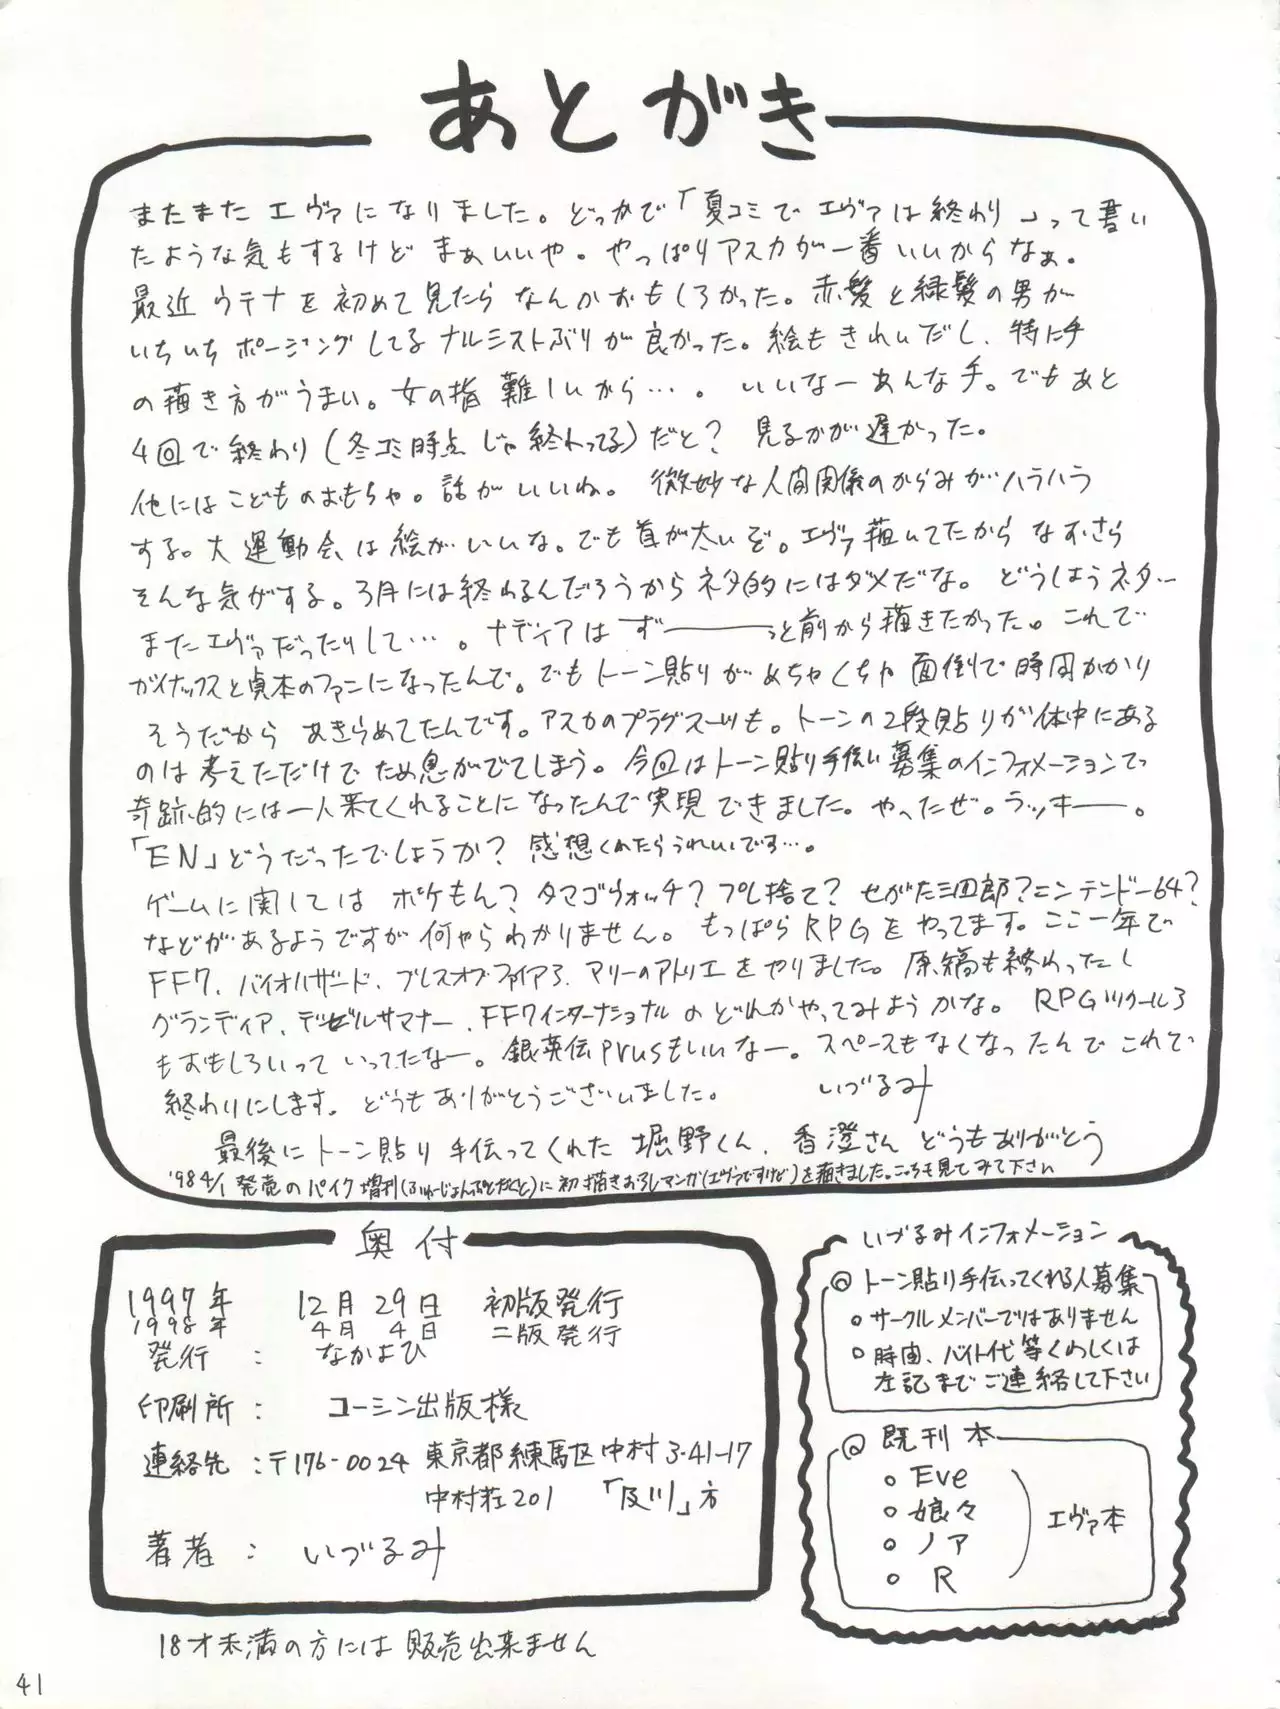 あとがき
またまたエヴァになりました。どっかで「夏コミでエヴァは終わり」って書い
たような気もするけどまぁいいや。やっぱりアスカが一番いいからなぁ。
最近ウテナを初めて見たらなんかおもしろかった。赤髪と緑髪の男が
いちいちポージングしてるナルシストぶりが良かった。絵もきれいだし、特に手
の描き方がうまい。女の指難しいから…。いいなーあんな手。でもあと
4回で終わり(冬コミ時点じゃ終わってる)だと？ 見るのが遅かった。
他にはこどものおもちゃ。話がいいね。微妙な人間関係のからみがハラハラ
する。大運動会は絵がいいな。でも首が太いぞ。エヴァ描いてたからなおさら
そんな気がする。3月には終わるんだろうからネタ的にはダメだな。どうしようネタ…
またエヴァだったりして…。ナディアはずーーっと前から描きたかった。これで
ガイナックスと貞本のファンになったんで。でもトーン貼りがめちゃくちゃ面倒で時間かかり
そうだからあきらめてたんです。アスカのプラグスーツも。トーンの2段貼りが体中にある
のは考えただけでため息がでてしまう。今回はトーン貼り手伝い募集のインフォメーションで
奇跡的には一人来てくれることになったんで実現できました。やったぜ。ラッキー。
「EN」どうだったでしょうか？感想くれたらうれしいです…。
ゲームに関してはポケもん？タマゴウォッチ？プレ捨て？せがた三四郎？ニンテンドー64？
などがあるようですが何やらわかりません。もっぱらRPGをやってます。ここ一年で
FF7、バイオハザード、ブレスオブファイア3、マリーのアトリエをやりました。原稿も終わったし
グランディア、デビルサマナー、FF7インターナショナルのどれかやってみようかな。RPGツクール3
もおもしろいっていってたなー。銀英伝prusもいいなー。スペースもなくなったんでこれで
終わりにします。どうもありがとうございました。 いづるみ
最後にトーン貼り手伝ってくれた堀野くん、香澄さんどうもありがとう
'98 4/1発売のパイク増刊(ふゅーじょんぷろだくと)に初描きおろしマンガ(エヴァですけど)を描きました。こっちも見てみて下さい
奥付
1997年 12月29日 初版発行
1998年 4月 4日 二版発行
発行 : なかよひ
印刷所 : コーシン出版様
連絡先 : 〒176-0024 東京都練馬区中村3-41-17
中村荘201 「及川」方
著者 : いづるみ
18才未満の方には販売出来ません
いづるみインフォメーション
◎トーン貼り手伝ってくれる人募集
○サークルメンバーではありません
○時間、バイト代等くわしくは
左記までご連絡して下さい
◎既刊本
○Eve
○娘々
○ノア
○R
エヴァ本
41